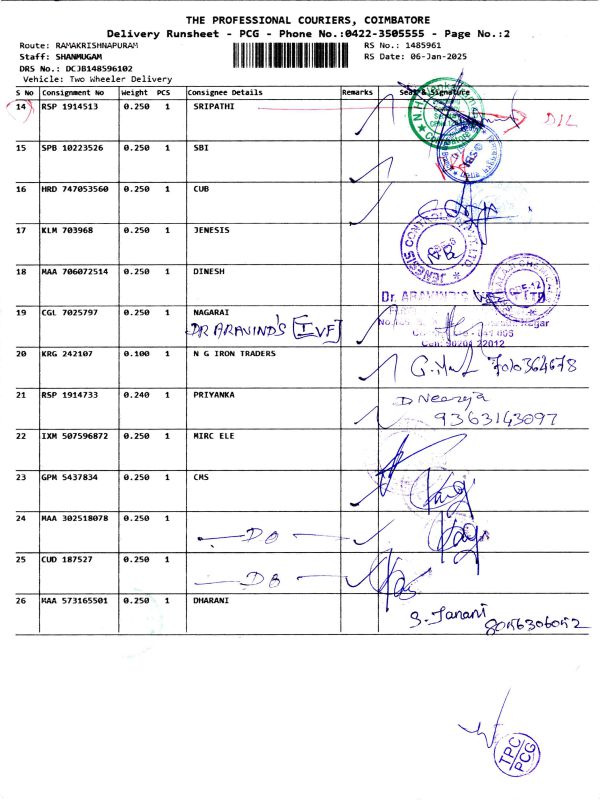 THE PROFESSIONAL COURIERS, COIMBATORE
Delivery Runsheet - PCG - Phone No.:0422-3505555 - Page No.:2
Route: RAMAKRISHNAPURAM RS No.: 1485961
Staff: SHANMUGAM RS Date: 06-Jan-2025
DRS No.: DCJB148596102
Vehicle: Two Wheeler Delivery
S No Consignment No Weight PCS Consignee Details Remarks Seal & Signature
14 RSP 1914513 0.250 1 SRIPATHI
15 SPB 10223526 0.250 1 SBI
16 HRD 747053560 0.250 1 CUB
17 KLM 703968 0.250 1 JENESIS
18 MAA 706072514 0.250 1 DINESH
Dr. ARAVIND
19 CGL 7025797 0.250 1 NAGARAI
DR ARAVIND'S [IVF]
20 KRG 242107 0.100 1 N G IRON TRADERS
21 RSP 1914733 0.240 1 PRIYANKA D Neeraja
9363143097
22 IXM 507596872 0.250 1 MIRC ELE
23 GPM 5437834 0.250 1 CMS
24 MAA 302518078 0.250 1
DO
25 CUD 187527 0.250 1
DO
26 MAA 573165501 0.250 1 DHARANI
S. Janani
8056306052
TPC
PCG